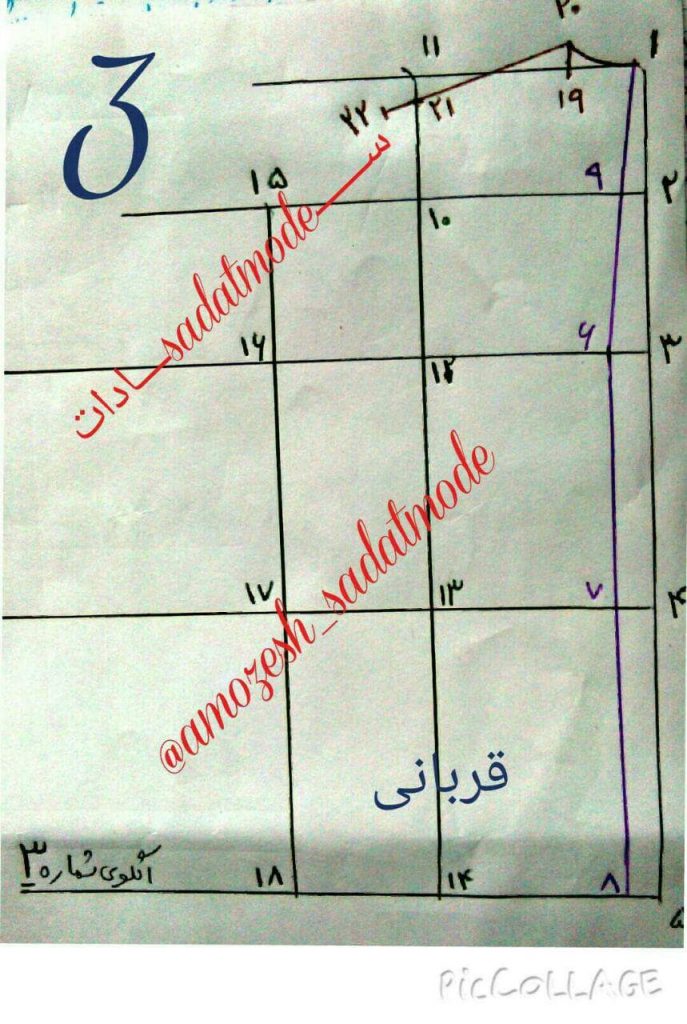 3
۲۰
۱
۱۱
۱۹
۲۱
۲۲
۱۵
۹
۲
۱۰
ســـادات
sadatmode
۱۶
۶
۳
۱۲
۱۷
۱۳
۷
۴
@amozesh_sadatmode
قربانی
الگوی شماره ۳
۱۸
۱۴
۸
۵
PICCOLLAGE